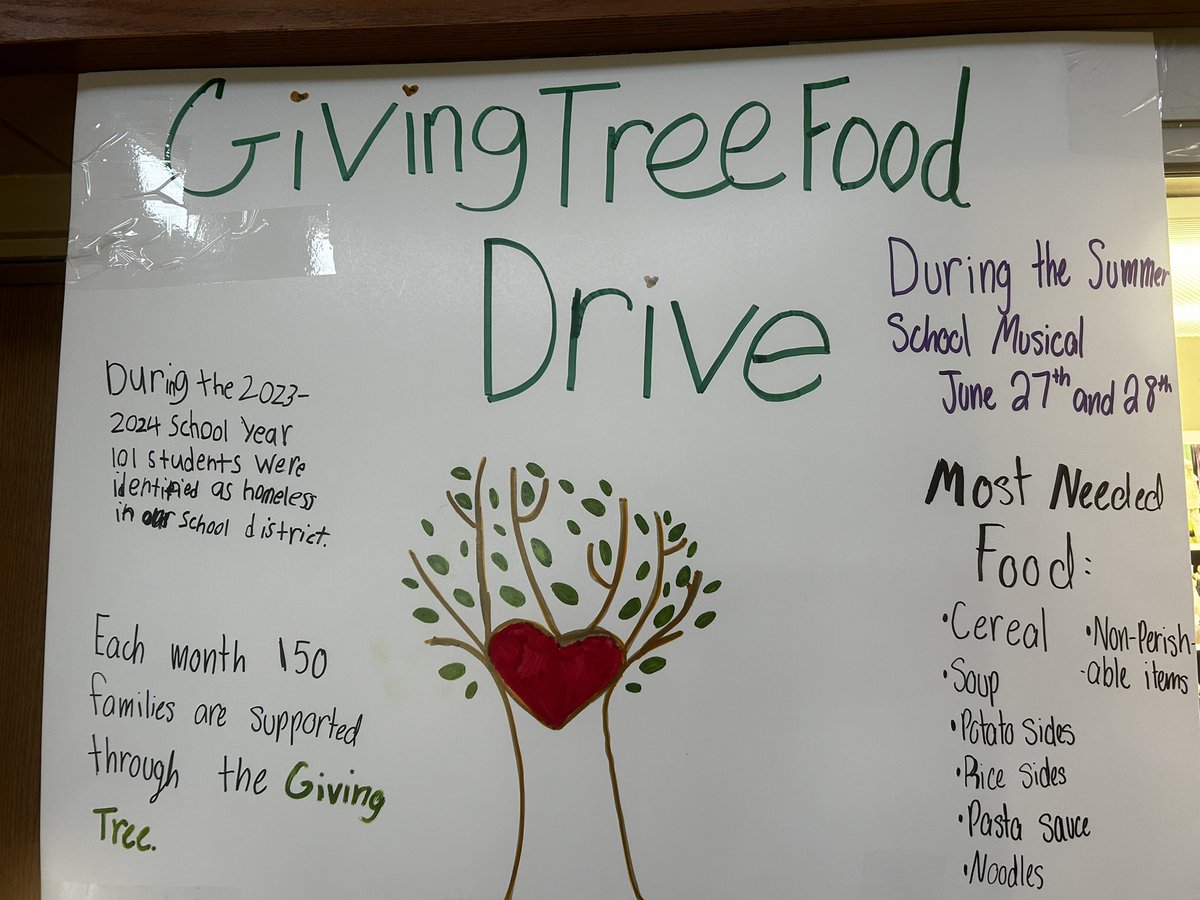 Giving Tree Food
Drive
During the Summer
School Musical
June 27th and 28th
During the 2023-
2024 School Year
101 students were
identified as homeless
in our school district.
Each month 150
families are supported
through the Giving
Tree.
Most Needed
Food:
•Cereal
•Soup
•Potato sides
•Rice sides
•Pasta sauce
•Noodles
•Non-Perish-
-able items